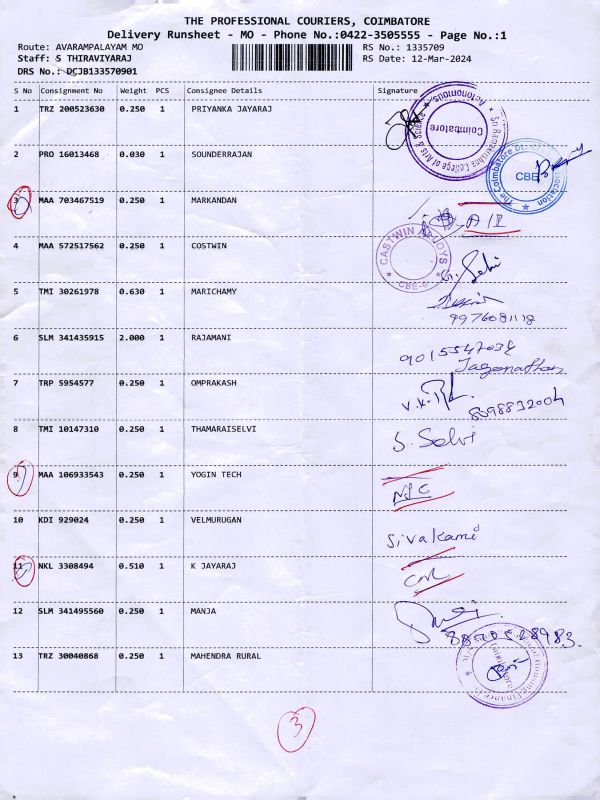 THE PROFESSIONAL COURIERS, COIMBATORE
Delivery Runsheet - MO - Phone No.:0422-3505555 - Page No.:1
Route: AVARAMPALAYAM MO RS No.: 1335709
Staff: S THIRAVIYARAJ RS Date: 12-Mar-2024
DRS No.: DCJB133570901
S No Consignment No Weight PCS Consignee Details Signature
1 TRZ 200523630 0.250 1 PRIYANKA JAYARAJ
Sri Ramakrishna College of Arts & Science
Autonomous
Coimbatore
2 PRO 16013468 0.030 1 SOUNDERRAJAN
The Coimbatore
Association
CBE
3 MAA 703467519 0.250 1 MARKANDAN
4 MAA 572517562 0.250 1 COSTWIN
CASTWIN ALLOYS
CBE-6
G. Selvi
5 TMI 30261978 0.630 1 MARICHAMY
9976081118
6 SLM 341435915 2.000 1 RAJAMANI
Jaganathan
7 TRP 5954577 0.250 1 OMPRAKASH
V.K.
8098832004
8 TMI 10147310 0.250 1 THAMARAISELVI
S. Selvi
9 MAA 106933543 0.250 1 YOGIN TECH
10 KDI 929024 0.250 1 VELMURUGAN
Sivakami
11 NKL 3308494 0.510 1 K JAYARAJ
12 SLM 341495560 0.250 1 MANJA
13 TRZ 30040868 0.250 1 MAHENDRA RURAL
3